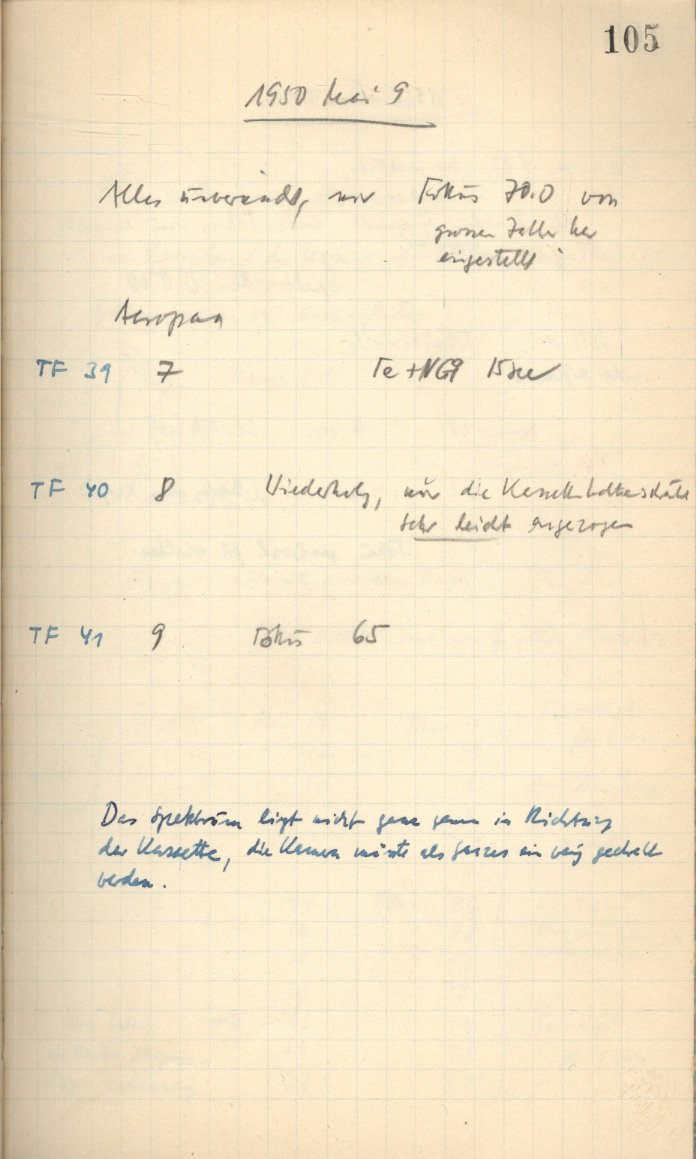 105
1950 Mai 9
Alles unverändt, nur Fokus 70.0 von
grossen Zahlen her
eingestellt
Aeropan
TF 39 7 Fe + NG9 15 sec
TF 40 8 Wiederholg, nur die
sehr leicht angezogen
TF 41 9 Fokus 65
Das Spektrum liegt nicht ganz genau in Richtung
der Kassette, die Kamera müsste als Ganzes ein wenig gedreht
werden.